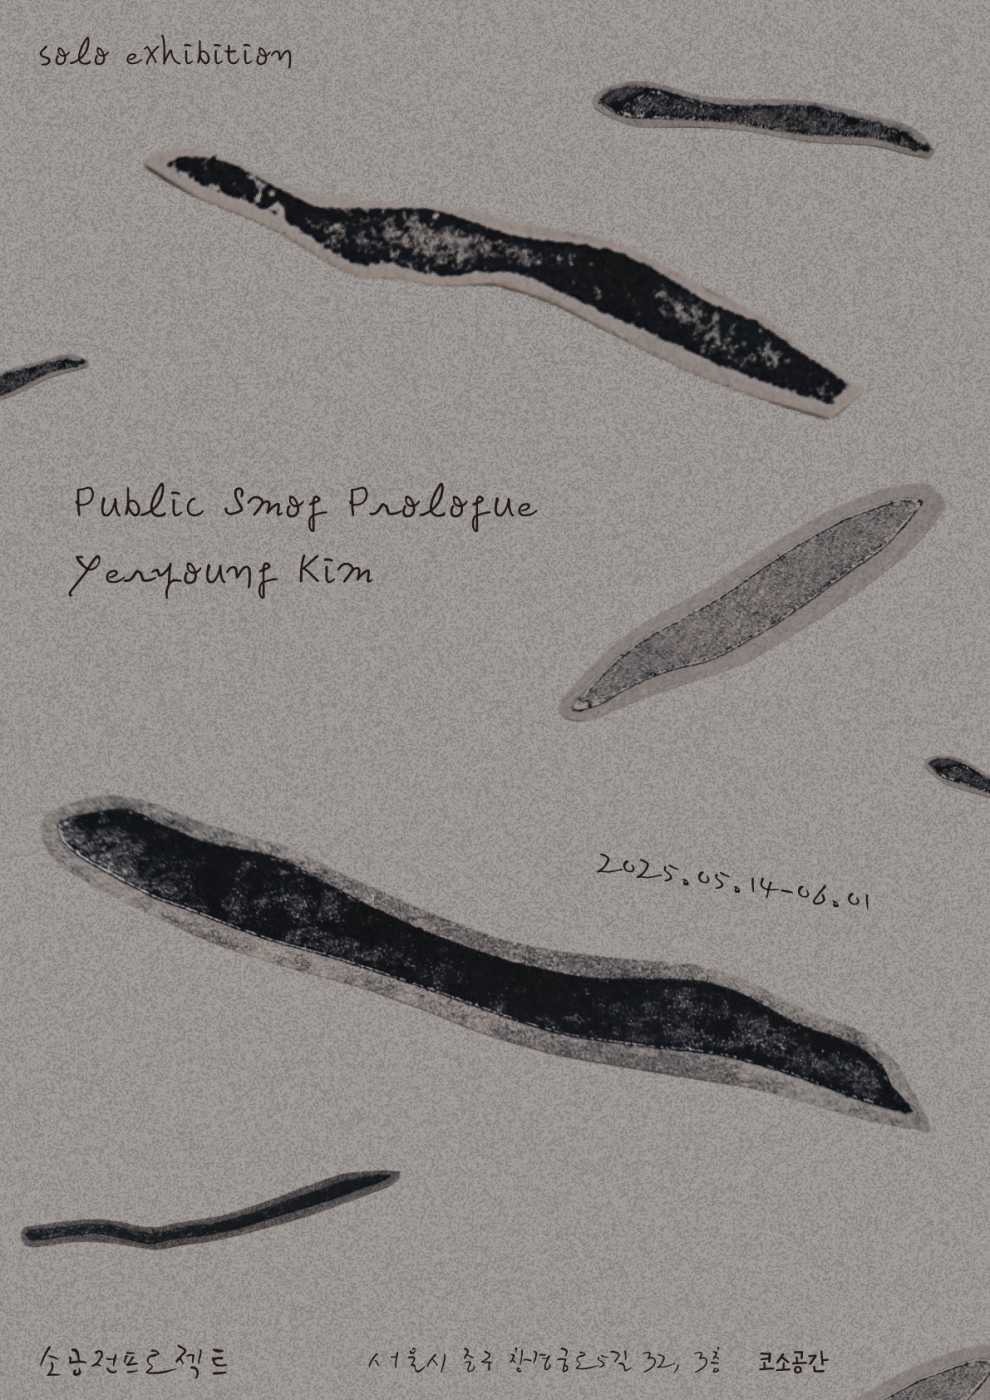 solo exhibition
Public Smog Prologue
Yeryoung Kim
2025.05.14-06.01
소공전프로젝트
서울시 중구 창경궁로5길 32, 3층 코소공간